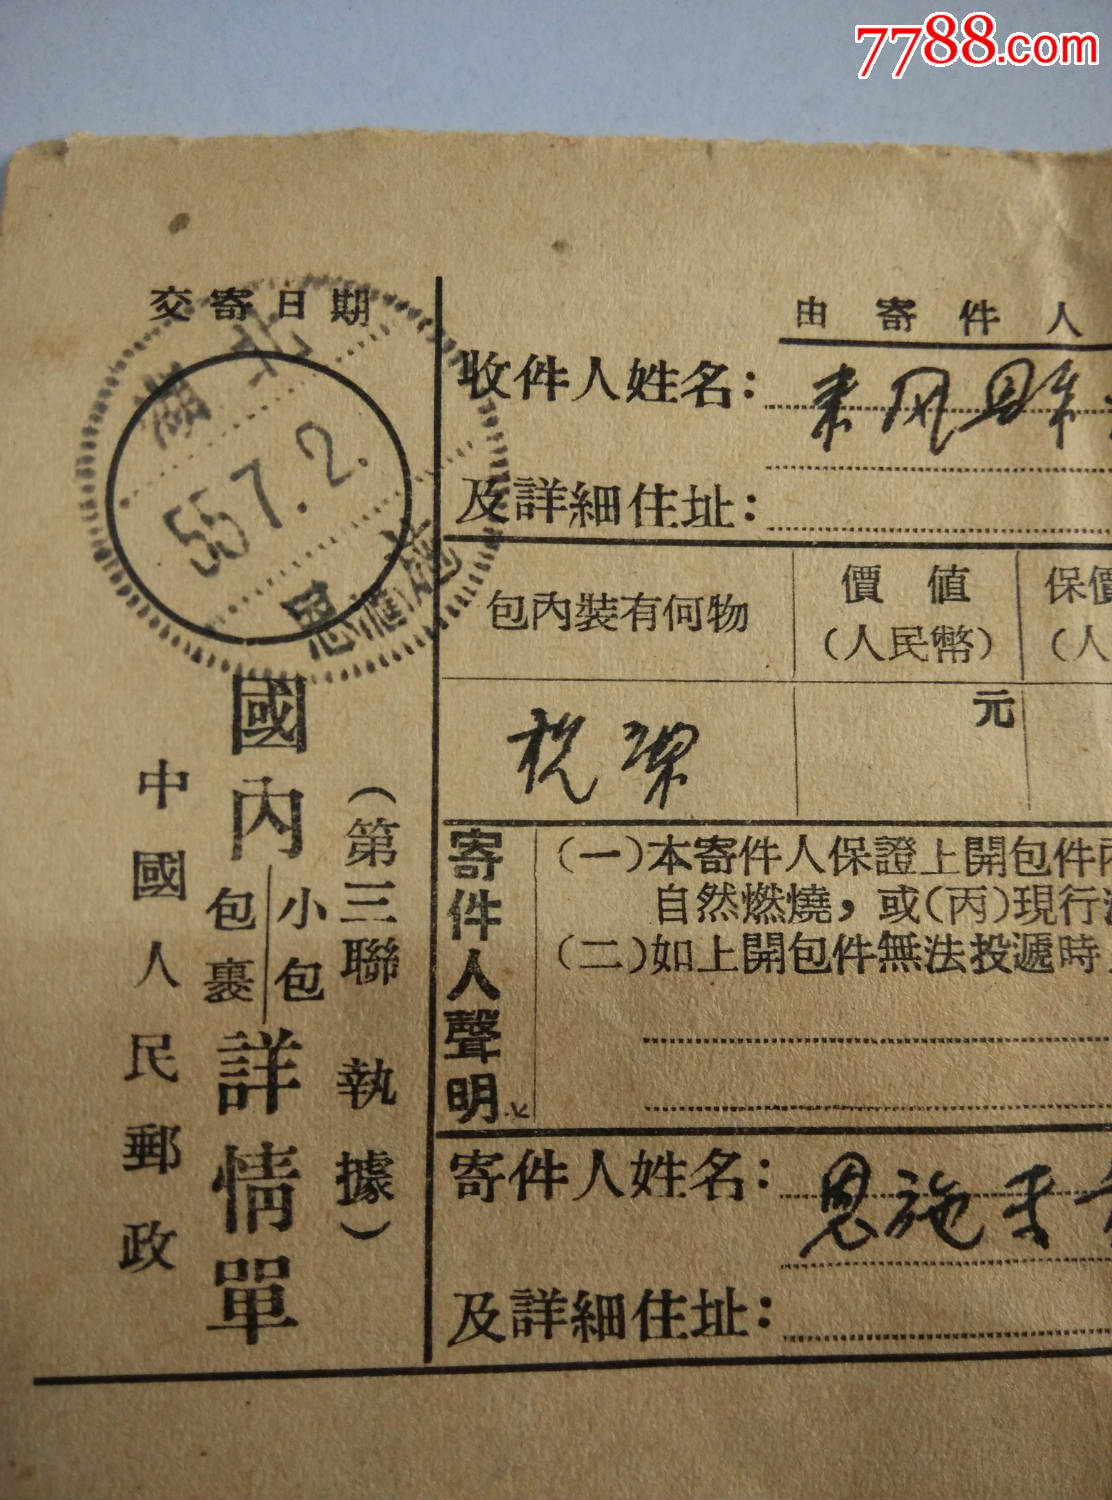 7788.com
交寄日期
湖北
55.7.2.
恩施
國內
包裹 小包
詳情單
(第三聯 執據)
中國人民郵政
由寄件人
收件人姓名:
来凤县
及詳細住址:
包內裝有何物
價值
(人民幣)
保價
(人
元
寄件人聲明
(一)本寄件人保證上開包件內
自然燃燒，或(丙)現行法
(二)如上開包件無法投遞時
寄件人姓名:
恩施
及詳細住址: